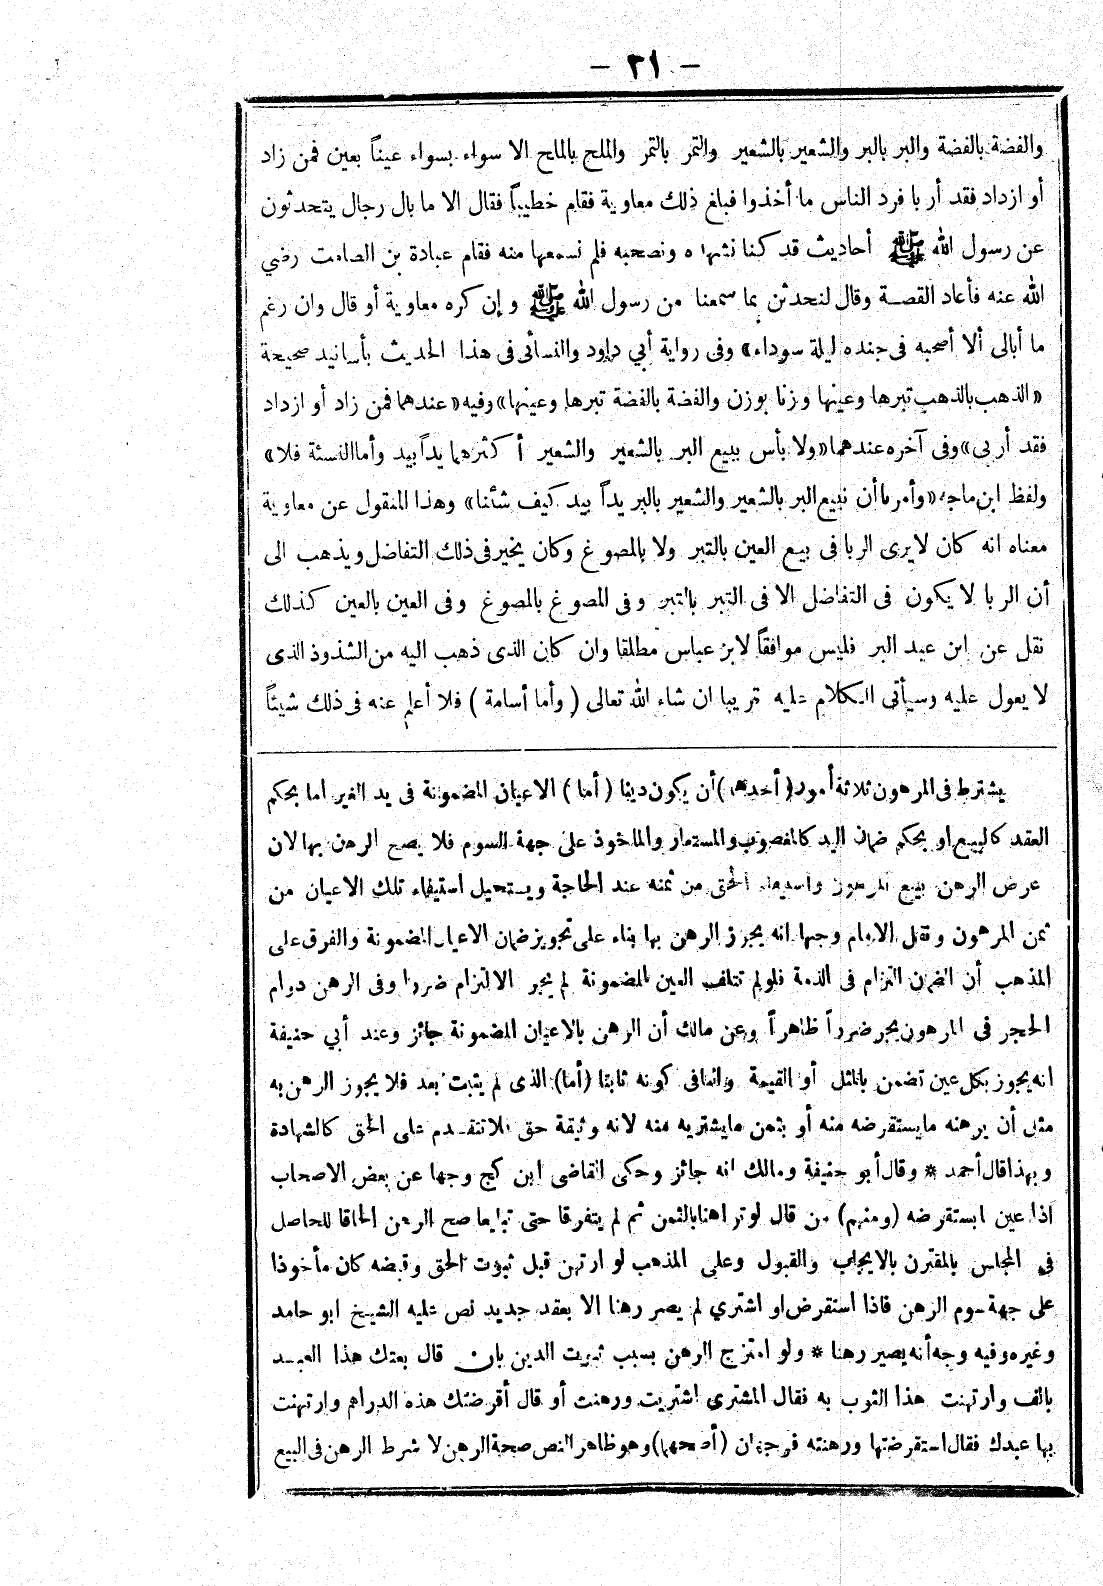 — ٣١ —
والفضة بالفضة والبر بالبر والشعير بالشعير والتمر بالتمر والملح بالملح الا سواء بسواء عيناً بعين فمن زاد
أو ازداد فقد أربا فرد الناس ما أخذوا فبلغ ذلك معاوية فقام خطيباً فقال الا ما بال رجال يتحدثون
عن رسول الله ﷺ أحاديث قد كنا نشهده ونصحبه فلم نسمعها منه فقام عبادة بن الصامت رضي
الله عنه فأعاد القصة وقال لنحدثن بما سمعنا من رسول الله ﷺ و إن كره معاوية أو قال وان رغم
ما أبالى ألا أصحبه فى جنده ليلة سوداء» وفى رواية أبي داود والنسائى فى هذا الحديث بأسانيد صحيحة
«الذهب بالذهب تبرها وعينها وزنا بوزن والفضة بالفضة تبرها وعينها» وفيه «عندهما فمن زاد أو ازداد
فقد أربى» وفى آخره عندهما «ولا بأس ببيع البر بالشعير والشعير أكثرهما يداً بيد وأما النسئة فلا»
ولفظ ابن ماجه «وأمرنا أن نبيع البر بالشعير والشعير بالبر يداً بيد كيف شئنا» وهذا المنقول عن معاوية
معناه انه كان لا يرى الربا فى بيع العين بالتبر ولا بالمصوغ وكان يخير فى ذلك التفاضل ويذهب الى
أن الربا لا يكون فى التفاضل الا فى التبر بالتبر وفى المصوغ بالمصوغ وفى العين بالعين كذلك
نقل عن ابن عبد البر فليس موافقاً لابن عباس مطلقا وان كان الذى ذهب اليه من الشذوذ الذى
لا يعول عليه وسيأتى الكلام عليه قريبا ان شاء الله تعالى (وأما أسامة) فلا أعلم عنه فى ذلك شيئاً
يشترط فى المرهون ثلاثة أمور (أحدها) أن يكون دينا (أما) الاعيان المضمونة فى يد الغير اما بحكم
العقد كالبيع او بحكم ضمان اليد كالمغصوب والمستعار والماخوذ على جهة السوم فلا يصح الرهن بها لان
عرض الرهن بيع المرهون واستيفاء الحق من ثمنه عند الحاجة ويستحيل استيفاء تلك الاعيان من
ثمن المرهون ونقل الامام وجها انه يجوز الرهن بها بناء على تجويز ضمان الاعيان المضمونة والفرق على
المذهب أن الضمان التزام فى الذمة فلو لم تتلف العين المضمونة لم يجر الالتزام ضررا وفى الرهن دوام
الحجر فى المرهون يجر ضرراً ظاهراً وعن مالك أن الرهن بالاعيان المضمونة جائز وعند أبي حنيفة
انه يجوز بكل عين تضمن بالمثل أو القيمة وانما فى كونه ثابتا (أما) الذى لم يثبت بعد فلا يجوز الرهن به
مثل أن يرهنه ما يستقرضه منه أو بثمن ما يشتريه منه لانه وثيقة حق فلا تتقدم على الحق كالشهادة
وبهذا قال أحمد * وقال أبو حنيفة ومالك انه جائز وحكى القاضى ابن كج وجها عن بعض الاصحاب
اذا عين ما يستقرضه (ومنهم) من قال لو تراهنا بالثمن ثم لم يتفرقا حتى تبايعا صح الرهن الحاقا للحاصل
فى المجلس بالمقترن بالايجاب والقبول وعلى المذهب لو ارتهن قبل ثبوت الحق وقبضه كان مأخوذا
على جهة سوم الرهن فاذا استقرض او اشتري لم يصر رهنا الا بعقد جديد نص عليه الشيخ ابو حامد
وغيره وفيه وجه أنه يصير رهنا * ولو امتزج الرهن بسبب ثبوت الدين بان قال بعتك هذا العبد
بالف وارتهنت هذا الثوب به فقال المشتري اشتريت ورهنت أو قال أقرضتك هذه الدراهم وارتهنت
بها عبدك فقال استقرضتها ورهنته فوجهان (أصحهما) وهو ظاهر النص صحة الرهن لا شرط الرهن فى البيع